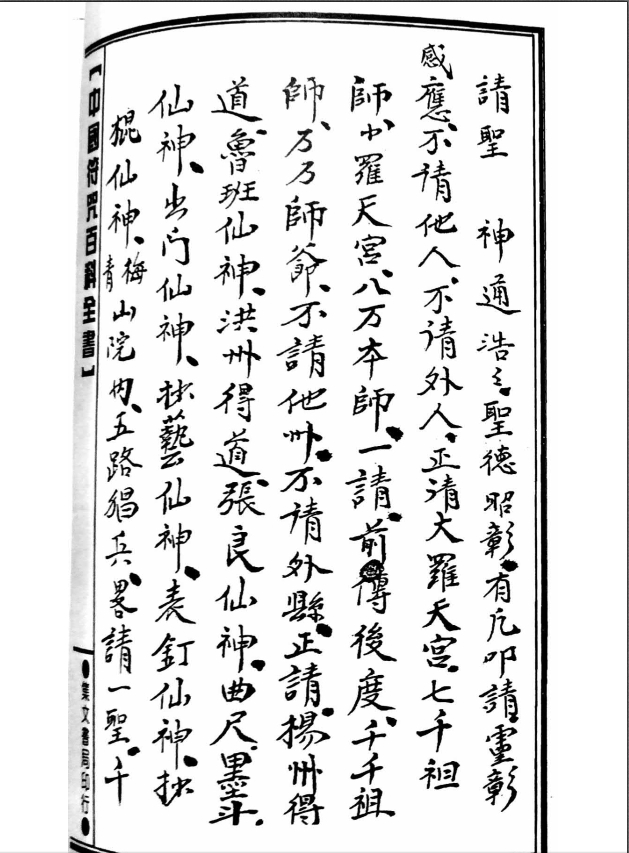 請聖　神通浩々、聖德昭彰、有凢叩請、靈彰
感應、不請他人、不请外人、正请大羅天宮、七千祖
師、小羅天宮、八万本師、一請、前傳後度、千千祖
師、万万師爺、不請他州、不请外縣、正請、揚州得
道、魯班仙神、洪州得道、張良仙神、曲尺、墨斗、
仙神、出门仙神、扶藝仙神、表釘仙神、扶
棍仙神、青梅山院内、五路猖兵、畧請一聖、千
「中國符咒百科全書」
●集文書局印行●